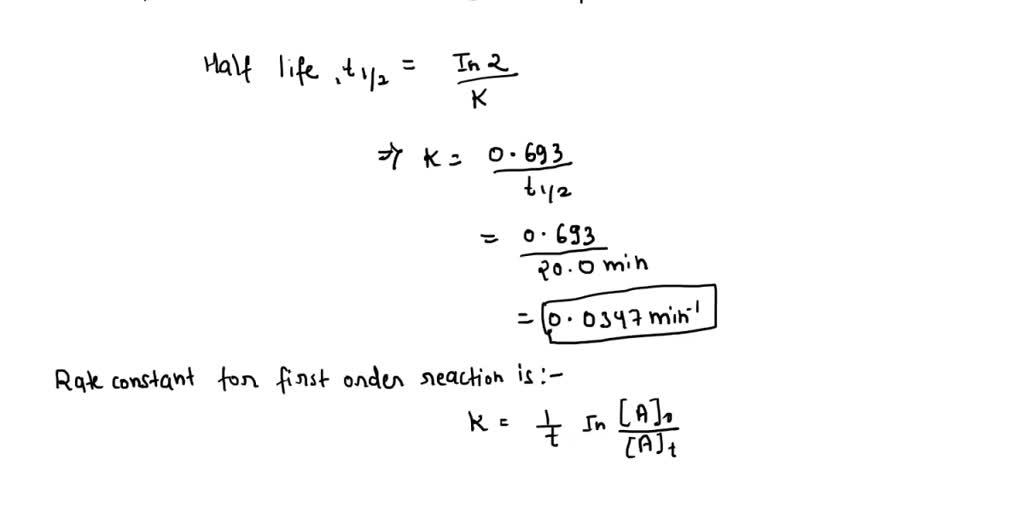 Half life, t1/2 = In 2 / K
⇒ K = 0.693 / t1/2
= 0.693 / 20.0 min
= 0.0347 min⁻¹
Rate constant for first order reaction is:-
K = 1/t In [A]₀/[A]t